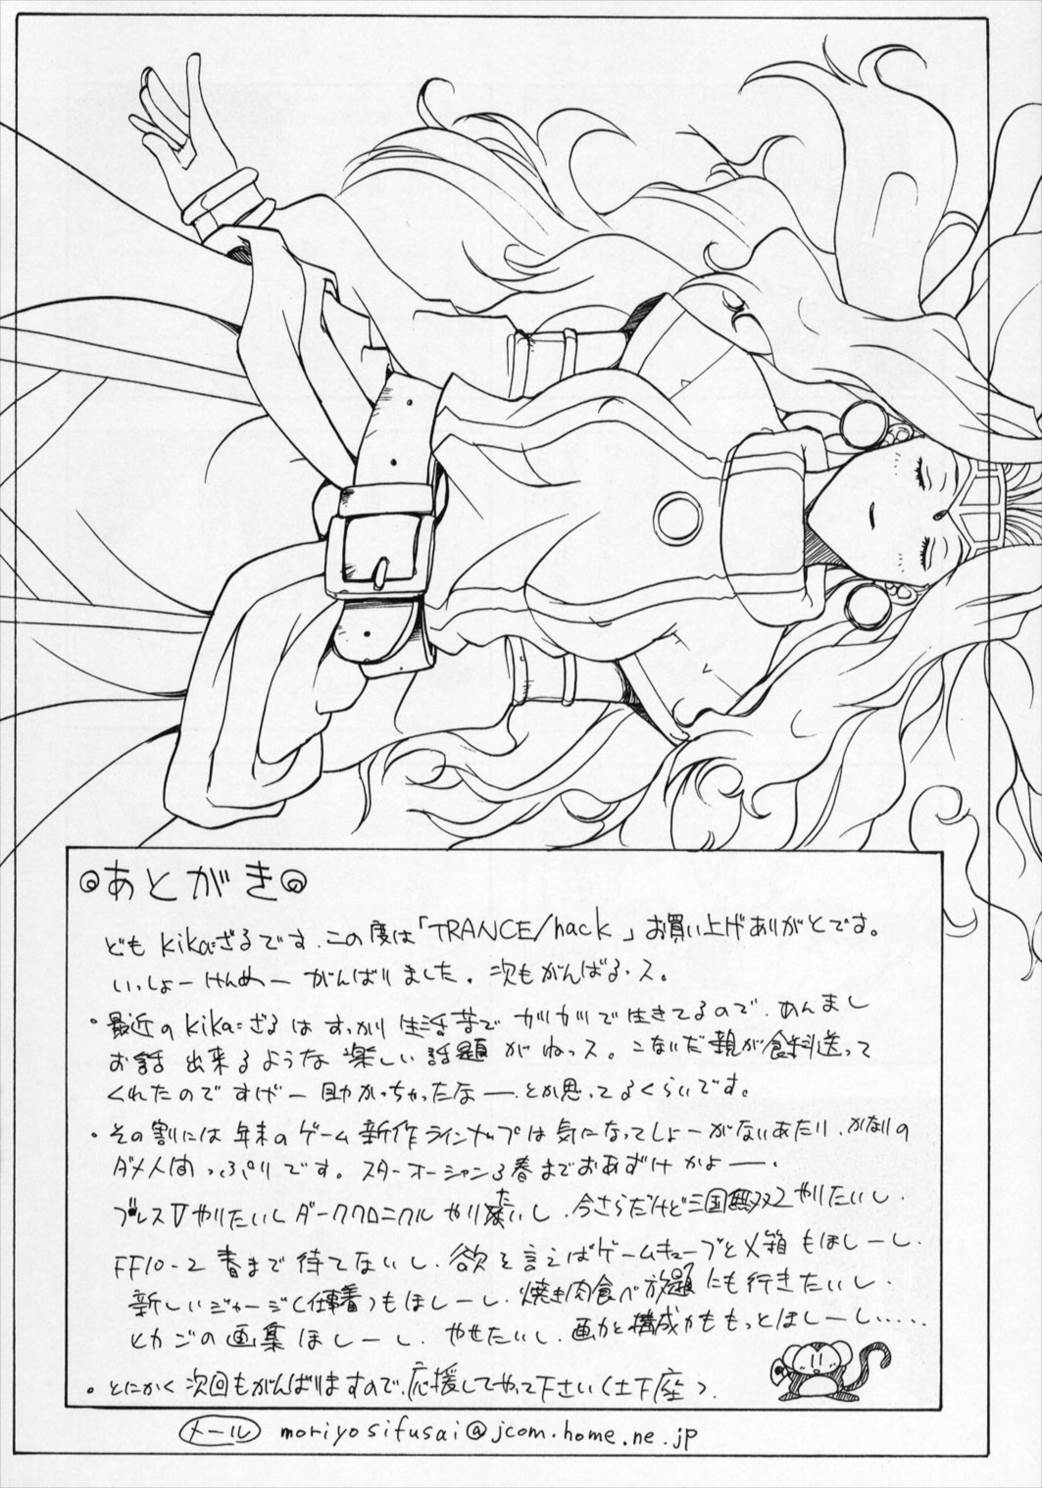 あとがき
どもkika=ざるです、この度は「TRANCE/hack」お買い上げありがとです。
いっしょーけんめーがんばりました。次もがんばる・ス。
・最近のkika=ざるはすっかり生活苦でガリガリで生きてるので、あんまし
お話出来るような楽しい話題がねっス。こないだ親が食料送って
くれたのですげー助かっちゃったなー、とか思ってるくらいです。
・その割には年末のゲーム新作ラインナップは気になってしょーがないあたり、かなりの
ダメ人間っぷりです。スターオーシャン3春までおあずけかよー、
ブレスⅤやりたいしダーククロニクルやりたいし、今さらだけど三国無双2やりたいし、
FF10-2春まで待てないし、欲を言えばゲームキューブとX箱もほしーし、
新しいジャージ(仕事着)もほしーし、焼き肉食べ放題にも行きたいし、
ヒカゴの画集ほしーし、やせたいし、画力と構成力ももっとほしーし……
・とにかく次回もがんばりますので、応援してやって下さい(土下座)。
メール moriyosifusai@jcom.home.ne.jp